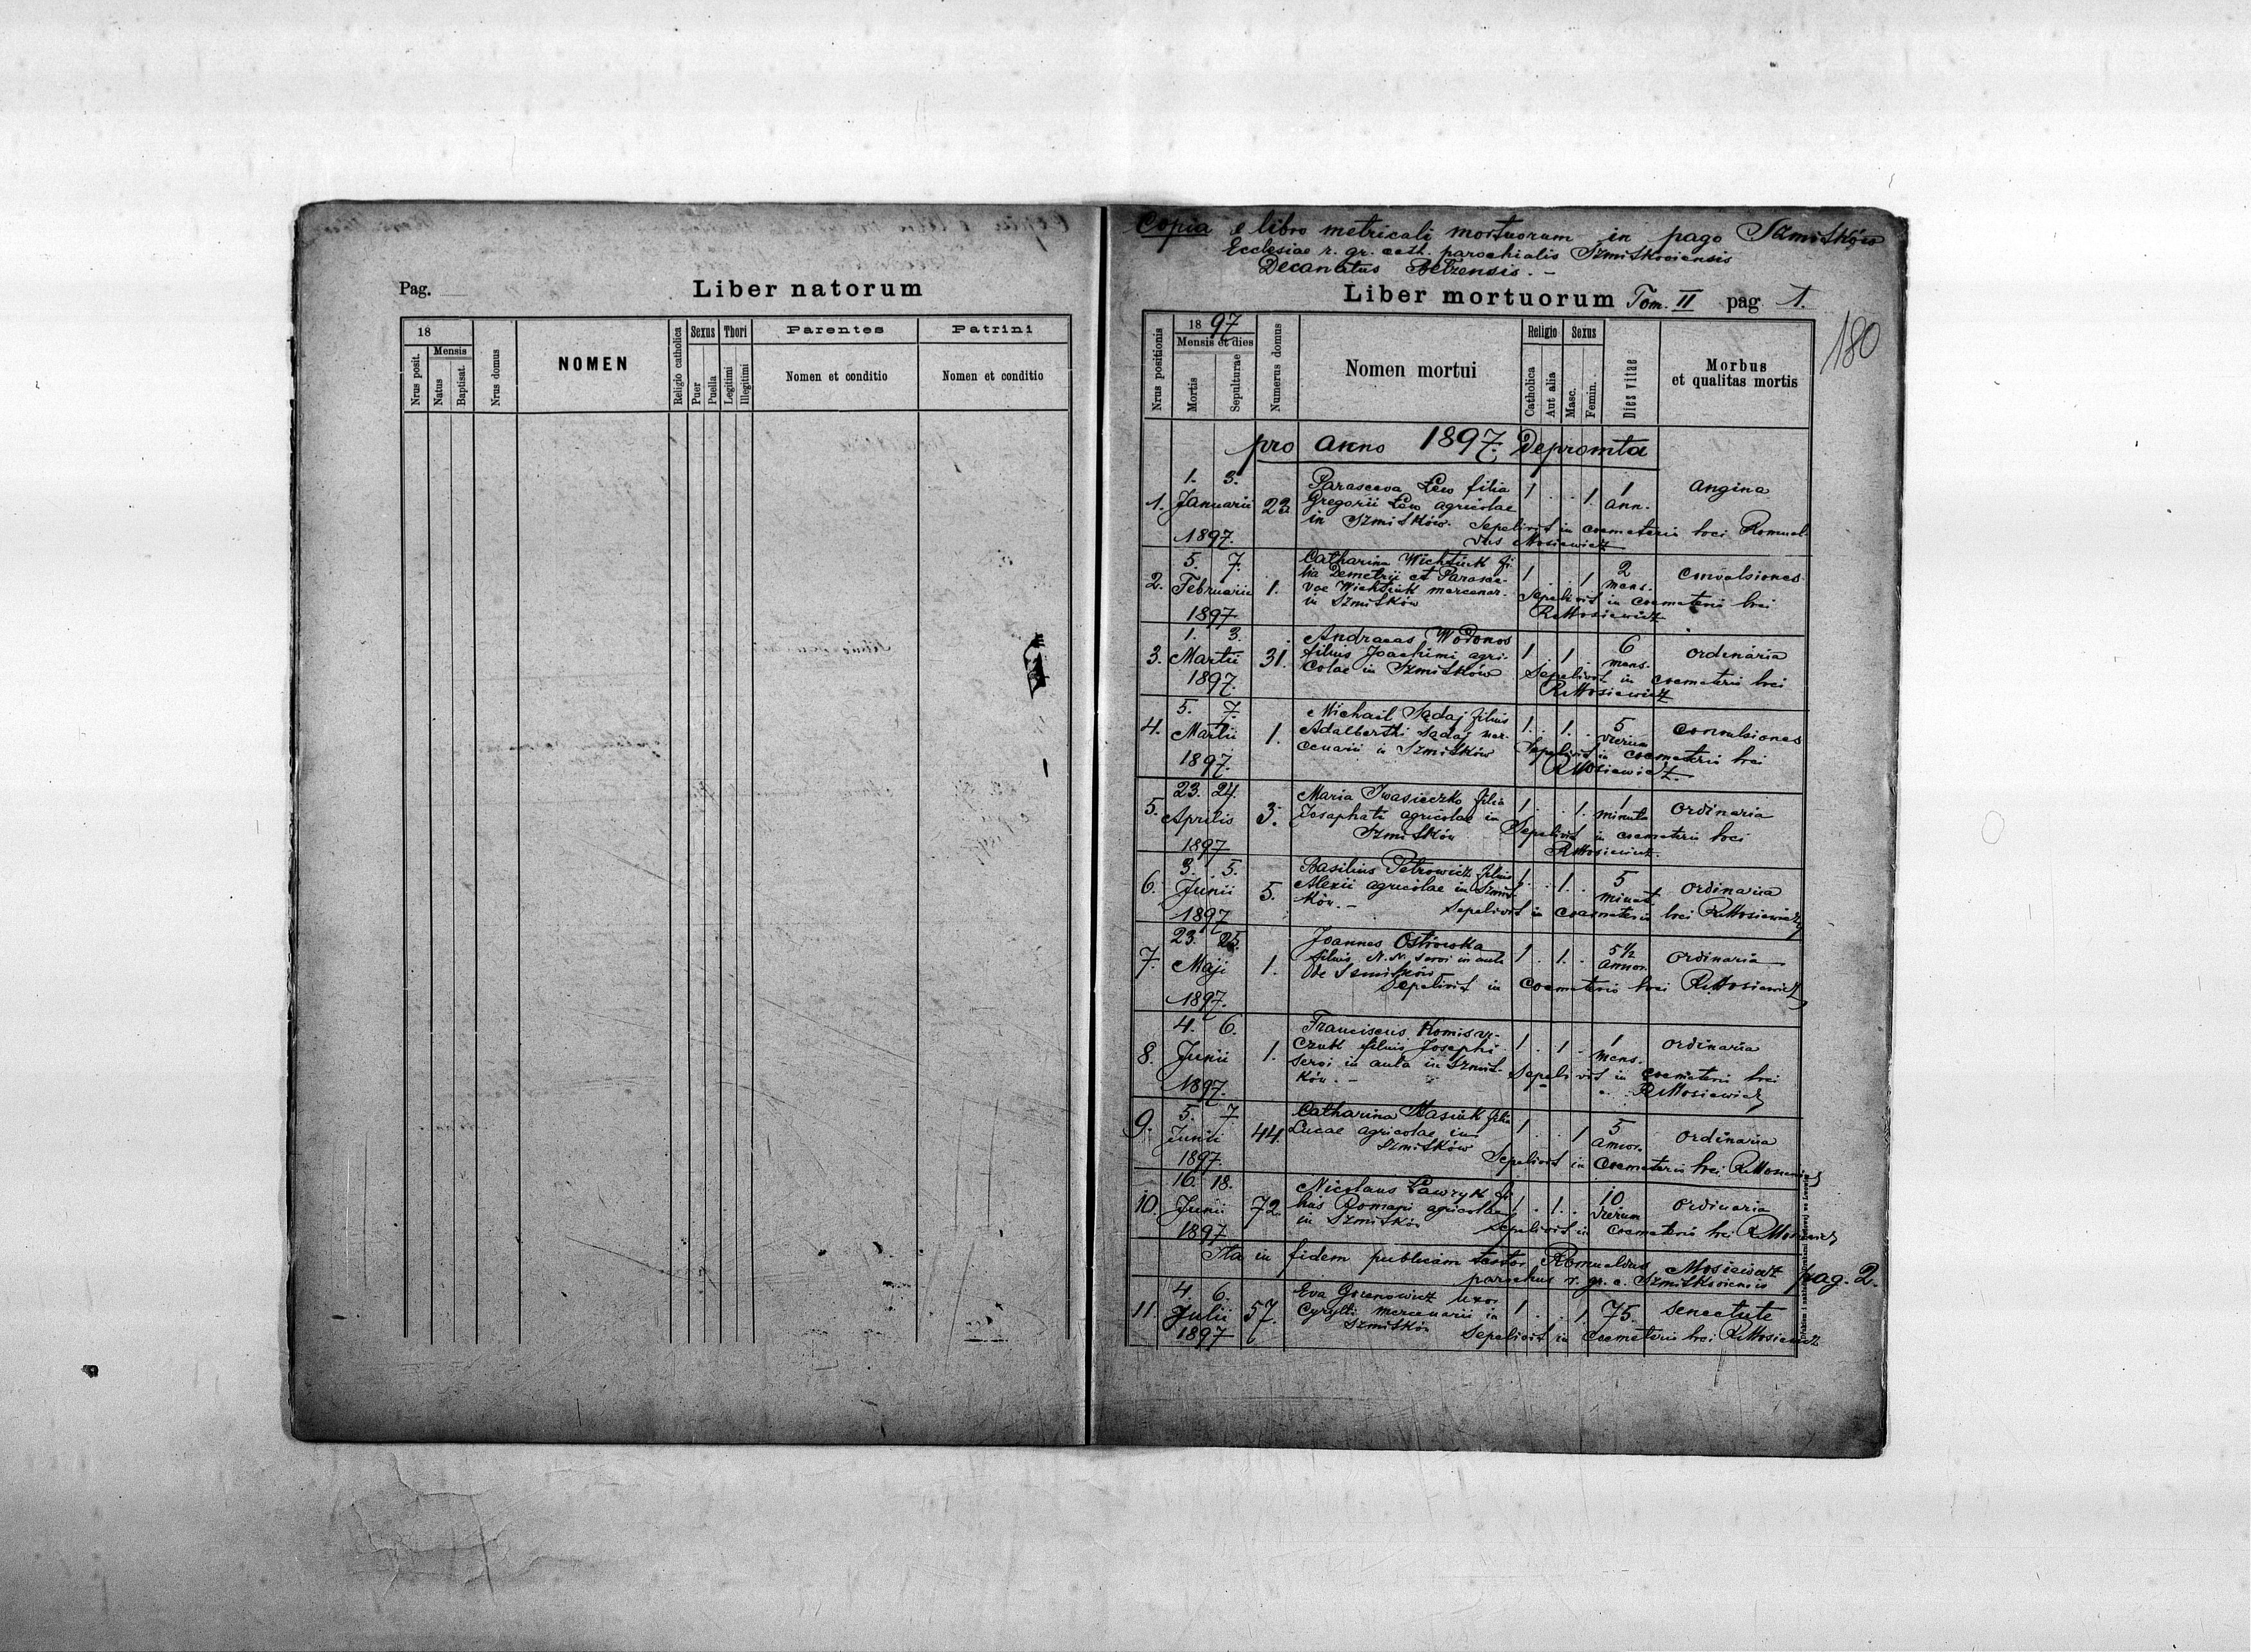 Pag.
Liber natorum
18
Nrus posit.
Mensis
Natus
Baptisat.
Nrus domus
NOMEN
Religio catholica
Sexus
Puer
Puella
Thori
Legitimi
Illegitimi
Parentes
Nomen et conditio
Patrini
Nomen et conditio
Copia e libro metricali mortuorum in pago Szmitków
Ecclesiae r. gr. cath. parochialis Szmitkoviensis
Decanatus Belzensis. –
Liber mortuorum Tom. II pag 1.
180
Nrus positionis
1897
Mensis et dies
Mortis
Sepulturae
Numerus domus
Nomen mortui
Religio
Catholica
Aut alia
Sexus
Masc.
Femin.
Dies vitae
Morbus
et qualitas mortis
pro anno 1897. Depromta
1. 3.
1. Januarii 23 Parasceva Lew filia 1 . . 1. 1 ann. Angina
Gregorii Lew agricolae
in Szmitków. Sepelivit in coemeterio loci Romual-
1897. dus Mosiewicz
5. 7. Catharina Wichtiuk fi-
2. Februarii 1. lia Demetrii et Parasce- 1 . . 1 2 mens. Convulsiones
vae Wichtiuk mercenar.
in Szmitków Sepelivit in coemeterio loci
1897 R Mosiewicz
1. 3. Andraeas Wodonos
3. Martii 31. filius Joachimi agri- 1 . 1 . 6 mens. ordinaria
colae in Szmitków Sepelivit in coemeterio loci
1897. R Mosiewicz
5. 7. Michail Sądaj filius
4. Martii 1. Adalberti Sądaj mer- 1 . 1 . 5 dierum Convulsiones
cenarii in Szmitków Sepelivit in coemeterio loci
1897. R Mosiewicz.
23. 24. Maria Iwasieczko filia
5. Aprilis 3. Josaphati agricolae in 1 . . 1. 1 minuta ordinaria
Szmitków Sepelivit in coemeterio loci
1897 R Mosiewicz.
3. 5. Basilius Petrowicz filius
6. Junii 5. Alexii agricolae in Szmit- 1 . 1. . 5 minut. ordinaria
ków. –
1897 Sepelivit in coemeterio loci R Mosiewicz
23. 25. Joannes Ostrowska
7. Maji 1. filius N. N. servi in aula 1 . 1. . 5 1/2 annor. ordinaria
de Szmitków
1897. Sepelivit in Coemeterio loci R Mosiewicz
4. 6. Franciscus Komisar-
8. Junii 1. czuk filius Josephi 1 . 1 . 1 mens. ordinaria
servi in aula in Szmit-
ków. – Sepelivit in coemeterio loci
1897. R Mosiewicz
5. 7. Catharina filia
9. Junii 44. Lucae agricolae in 1 . . 1 5 annor. ordinaria
Szmitków
1897. Sepelivit in Coemeterio loci R Mosiewicz
16. 18. Nicolaus Ławryk fi-
10. Junii 72. lius Romani agricolae 1 . 1. . 10 dierum ordinaria
in Szmitków
1897 Sepelivit in Coemeterio loci R Mosiewicz
Ita in fidem publicam testor Romualdus Mosiewicz pag. 2.
parochus r. gr. c. Szmitkoviensis
4. 6. Eva uxor
11. Julii 57. Cyrylli mercenarii in 1 . . 1. 75. Senectute
Szmitków
1897 Sepelivit in Coemeterio loci R Mosiewicz